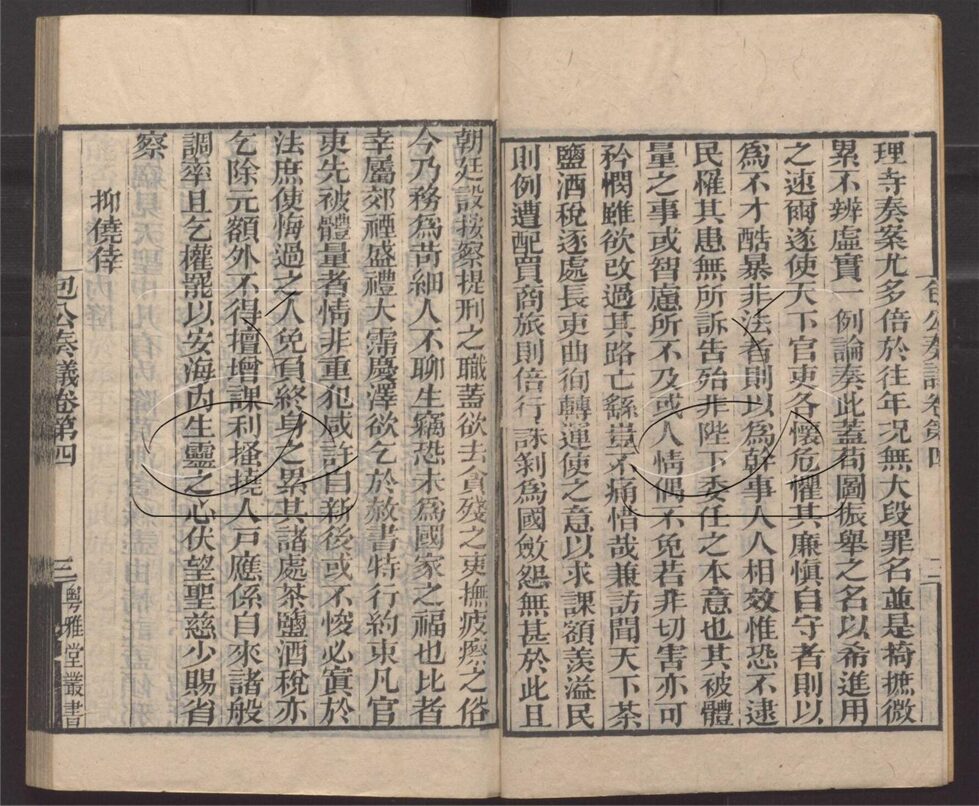 理寺奏案尤多倍於往年况無大段罪名並是掎摭微
累不辨虛實一例論奏此蓋苟圖振舉之名以希進用
之速爾遂使天下官吏各懷危懼其廉愼自守者則以
爲不才酷暴非法者則以爲幹事人人相效惟恐不逮
民罹其患無所訴吿殆非陛下委任之本意也其被體
量之事或智慮所不及或人情偶不免若非切害亦可
矜憫雖欲改過其路亡繇豈不痛惜哉兼訪聞天下茶
鹽酒稅逐處長吏曲徇轉運使之意以求課額羨溢民
則例遭配買商旅則倍行誅剝爲國斂怨無甚於此且
包公奏議卷第四
二
朝廷設按察提刑之職蓋欲去貪殘之吏撫疲瘵之俗
今乃務爲苛細人不聊生竊恐未爲國家之福也比者
幸屬郊禋盛禮大霈慶澤欲乞於赦書特行約束凡官
吏先被體量者情非重犯咸許自新後或不悛必寘於
法庶使悔過之人免負終身之累其諸處茶鹽酒稅亦
乞除元額外不得擅增課利搔擾人戸應係自來諸般
調率且乞權罷以安海內生靈之心伏望聖慈少賜省
察
抑僥倖
包公奏議卷第四
三
粵雅堂叢書